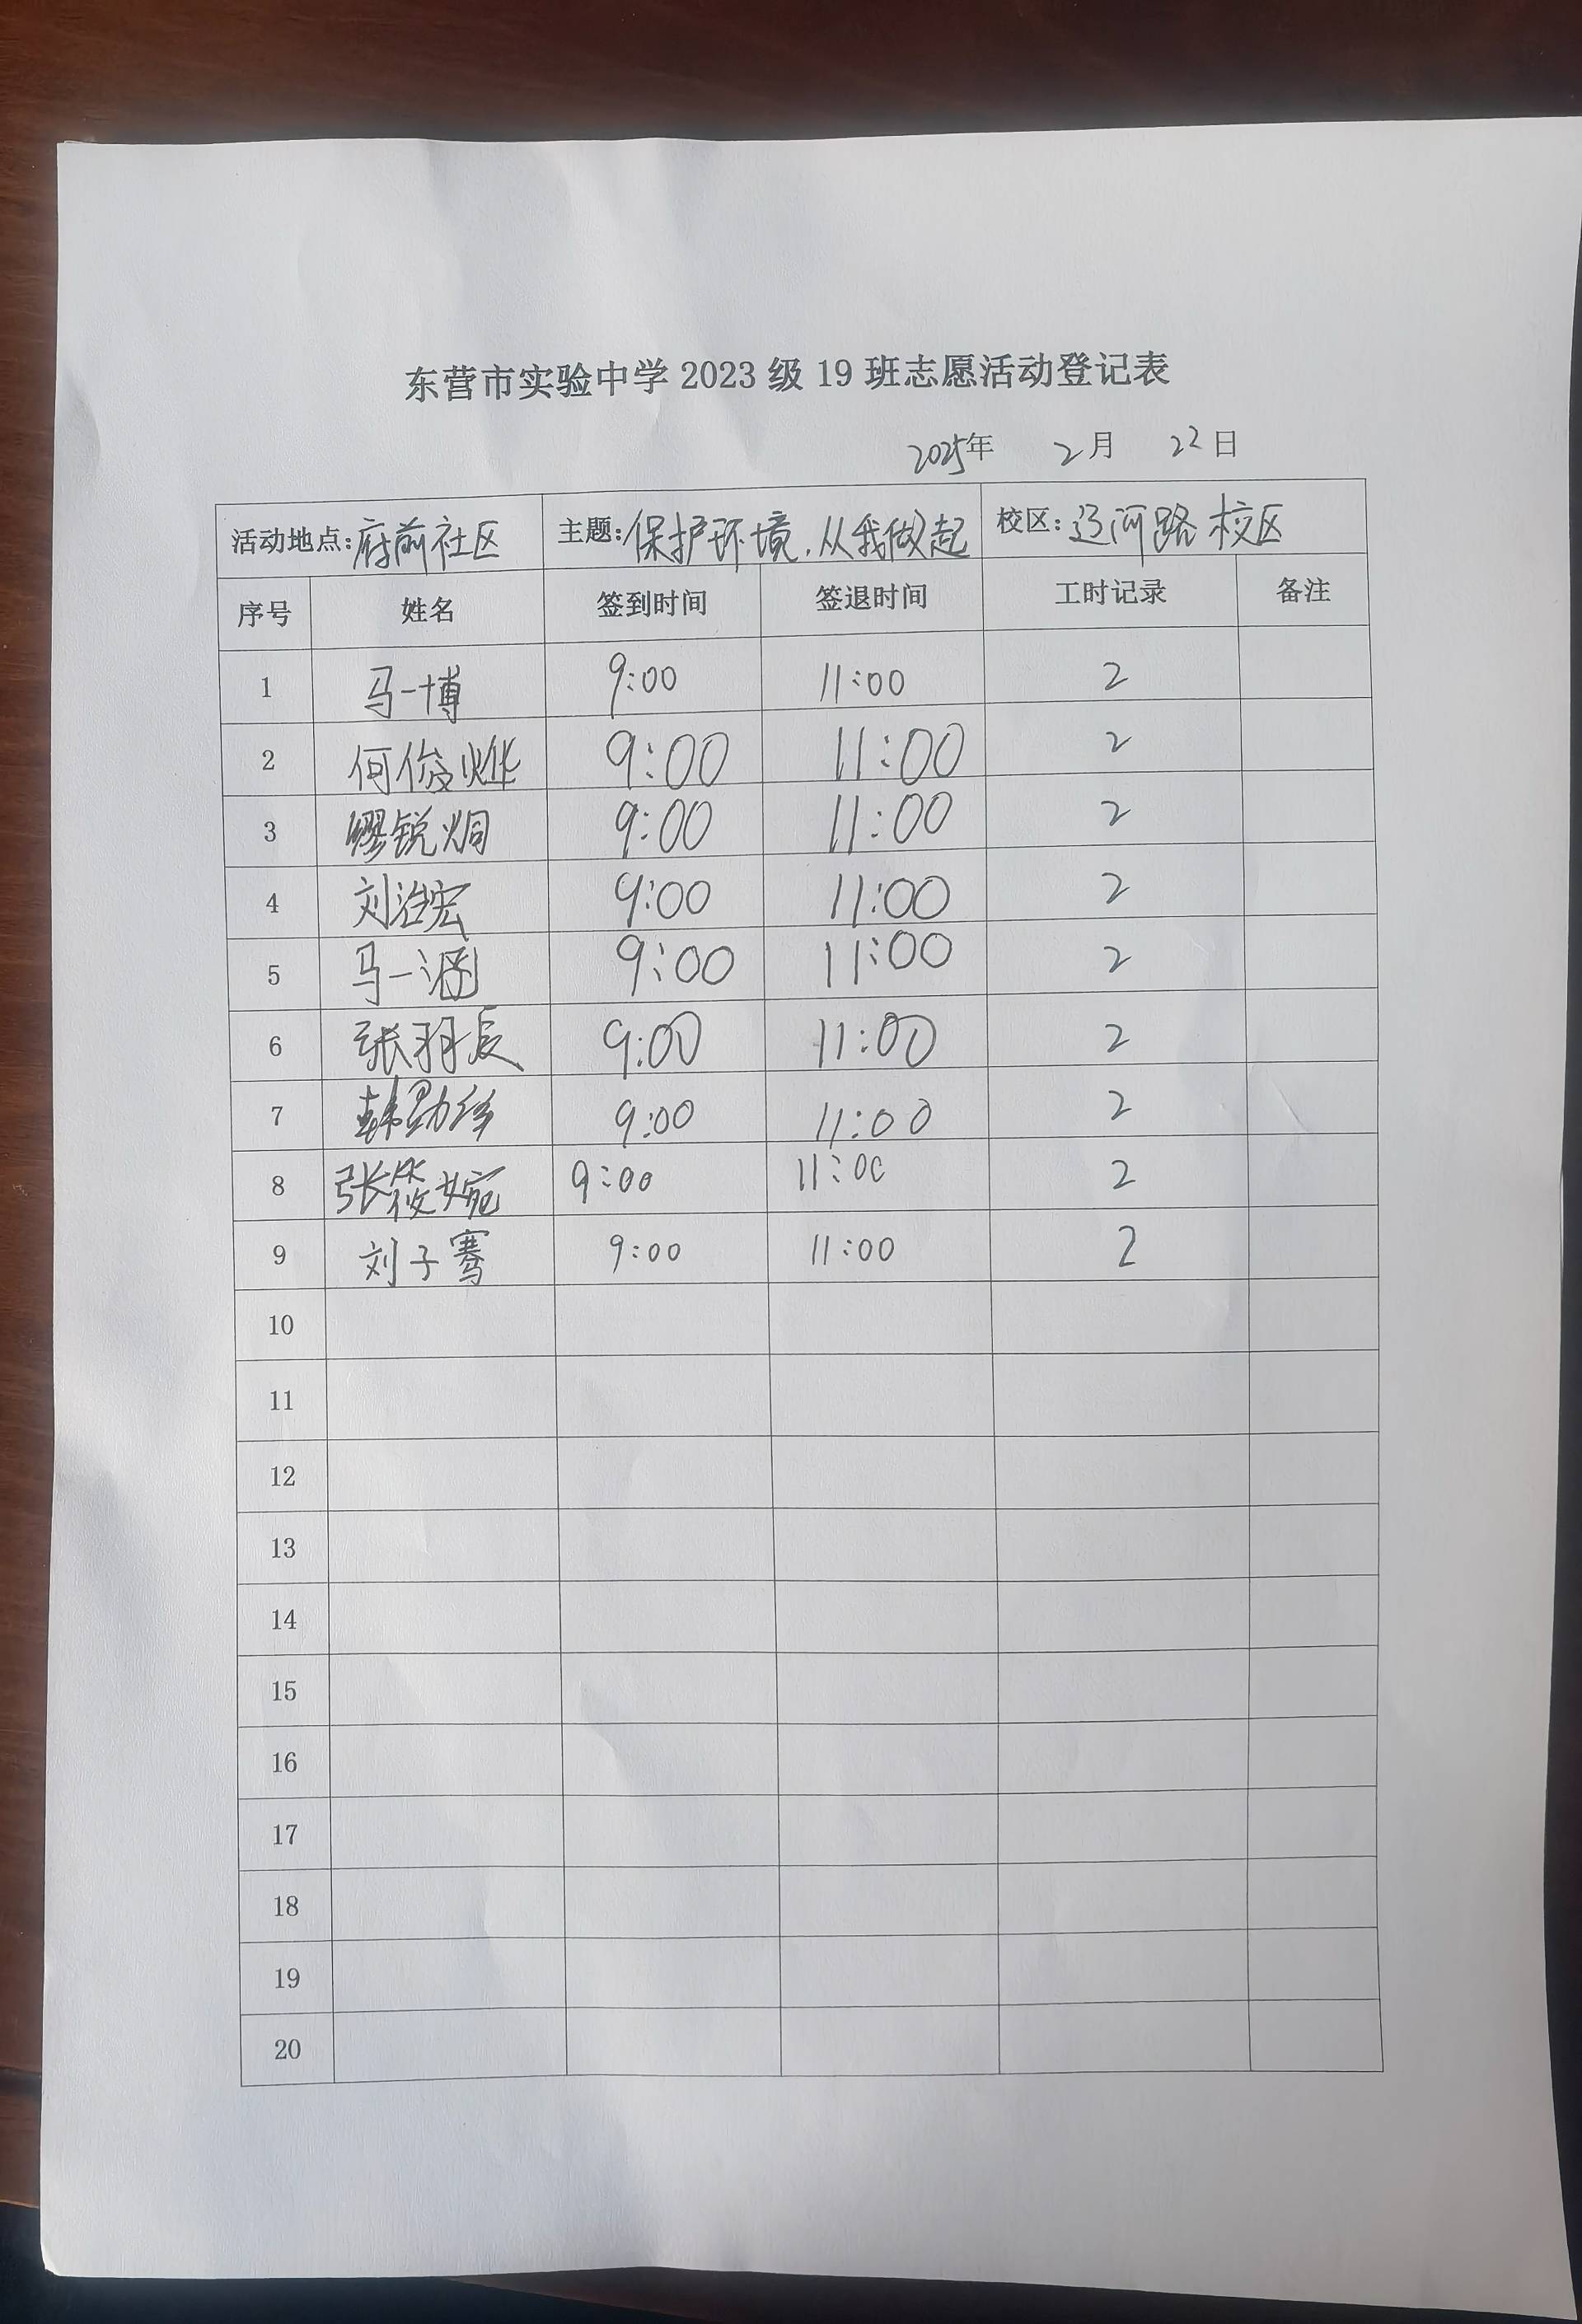 东营市实验中学 2023 级 19 班志愿活动登记表
2025年 2月 22日
活动地点:府前社区 主题:保护环境,从我做起 校区:辽河路校区
序号 姓名 签到时间 签退时间 工时记录 备注
1 马一博 9:00 11:00 2
2 何俊烨 9:00 11:00 2
3 缪锐炯 9:00 11:00 2
4 刘浩宏 9:00 11:00 2
5 马一涵 9:00 11:00 2
6 张羽辰 9:00 11:00 2
7 9:00 11:00 2
8 张筱婉 9:00 11:00 2
9 刘子骞 9:00 11:00 2
10
11
12
13
14
15
16
17
18
19
20